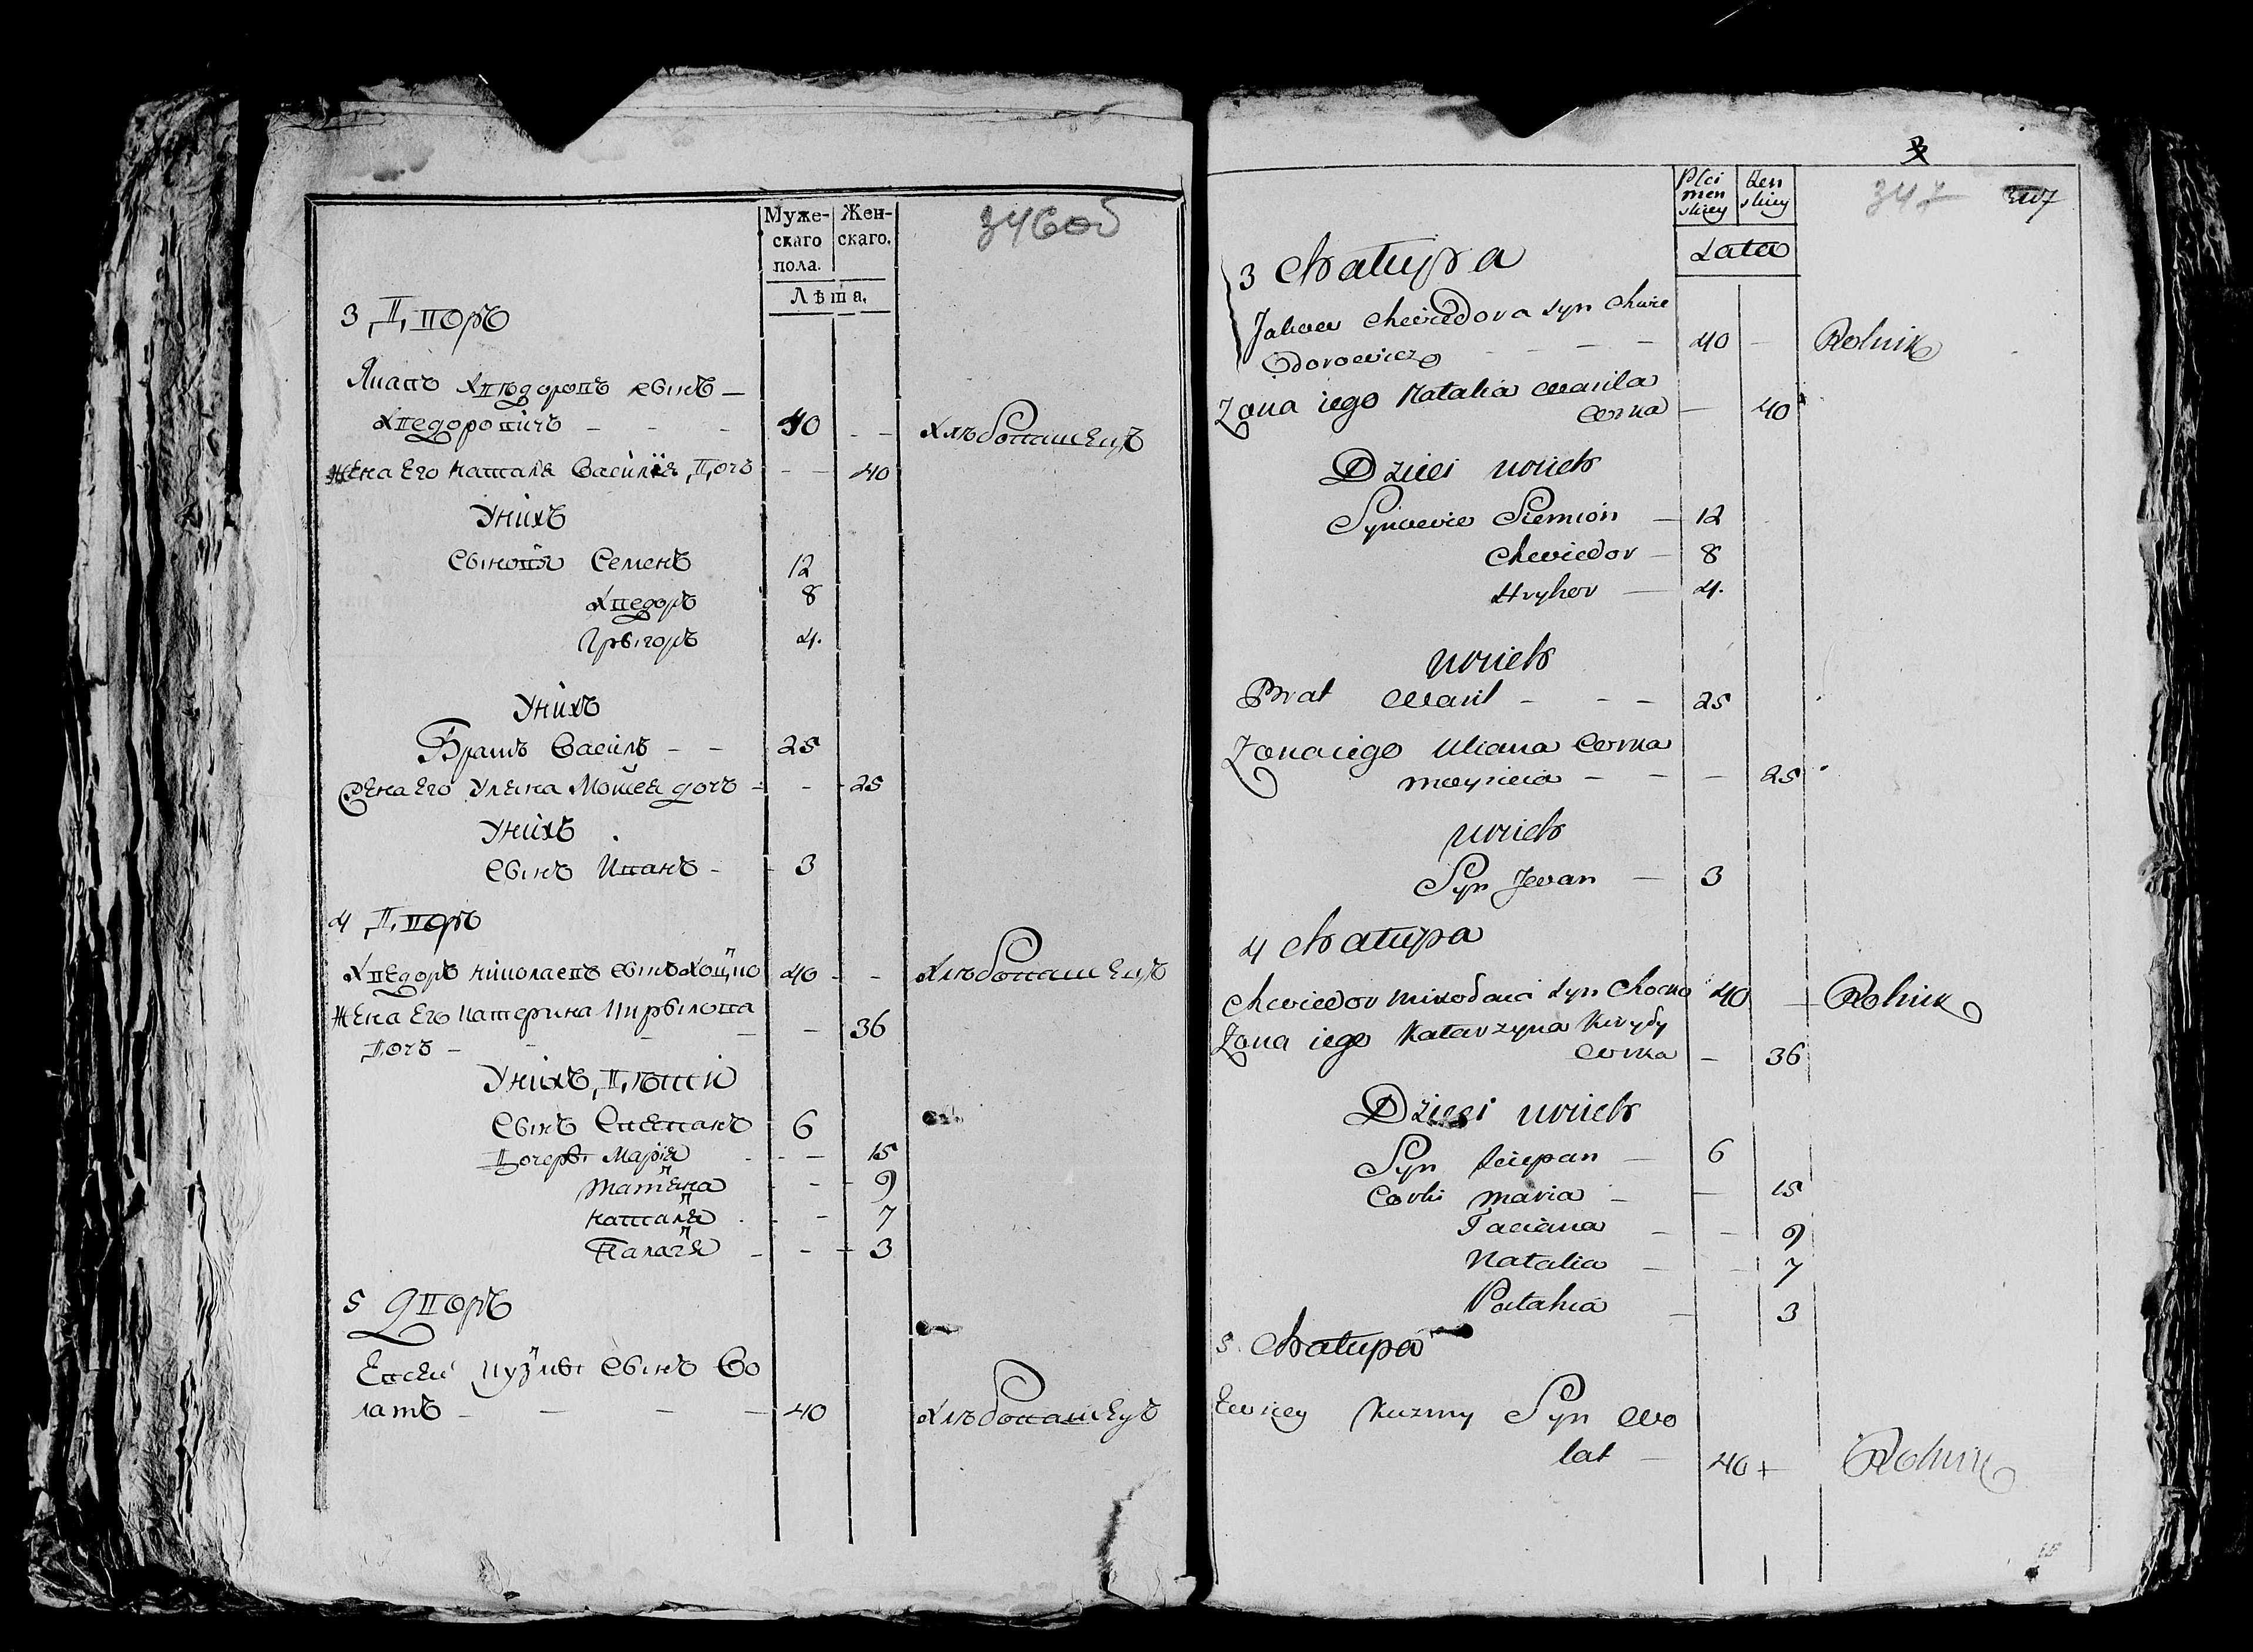 Муже-
скаго
пола.
Жен-
скаго.
Лѣта.
346об
3 Дворъ
Яковъ Хведоровъ сынъ
Хведоровичъ - - - 40 - - Хлѣбопашецъ
Жена Его Наталя Василія Дочъ - - 40
У нихъ
Сыновя Семенъ 12
Хведоръ 8
Грыгоръ 4.
У нихъ
Братъ Василъ - - 25
Жена Его Уляна Мойсея дочъ - - 25
У нихъ
Сынъ Иванъ - 3
4 Дворъ
Хведоръ Николаевъ сынъ Хоцко 40 - - Хлѣбопашецъ
Жена Его Катерина Кирылова
Дочъ - - - 36
У нихъ Дѣти
Сынъ Степанъ 6
Дочеры Марія - - 15
Татяна - - 9
Наталя - - 7
Палагя - - - 3
5 Дворъ
Евсей Кузмы Сынъ Во
латъ - - - - 40 Хлѣбопашецъ
3
347 347
Płci
męn
skiey
żen
skiey
Lata
3 Chatupa
Jakow Chwiedora syn Chwie
dorowicz - - - - 40 - Rolnik
Zona iego Natalia Wasila
Corka - 40
Dzieci u nich
Synowie Siemion - 12
Chwiedor - 8
Hryhor - 4.
u nich
Brat Wasil - - - 25
Zona iego Uliana Corka
Moysieia - - - 25
u nich
Syn Jwan - 3
4 Chatupa
Chwiedor Mikołaia syn Chocko 40 - Rolnik
Zona iego Katarzyna Kiryły
Corka - 36
Dzieci u nich
Syn Sciepan - 6
Corki Maria - - 15
Taciana - - 9
Natalia - - 7
Pałahia - 3
5 Chatupa
Ewsiey Kuzmy Syn Wo
lat - 40 - Rolnik